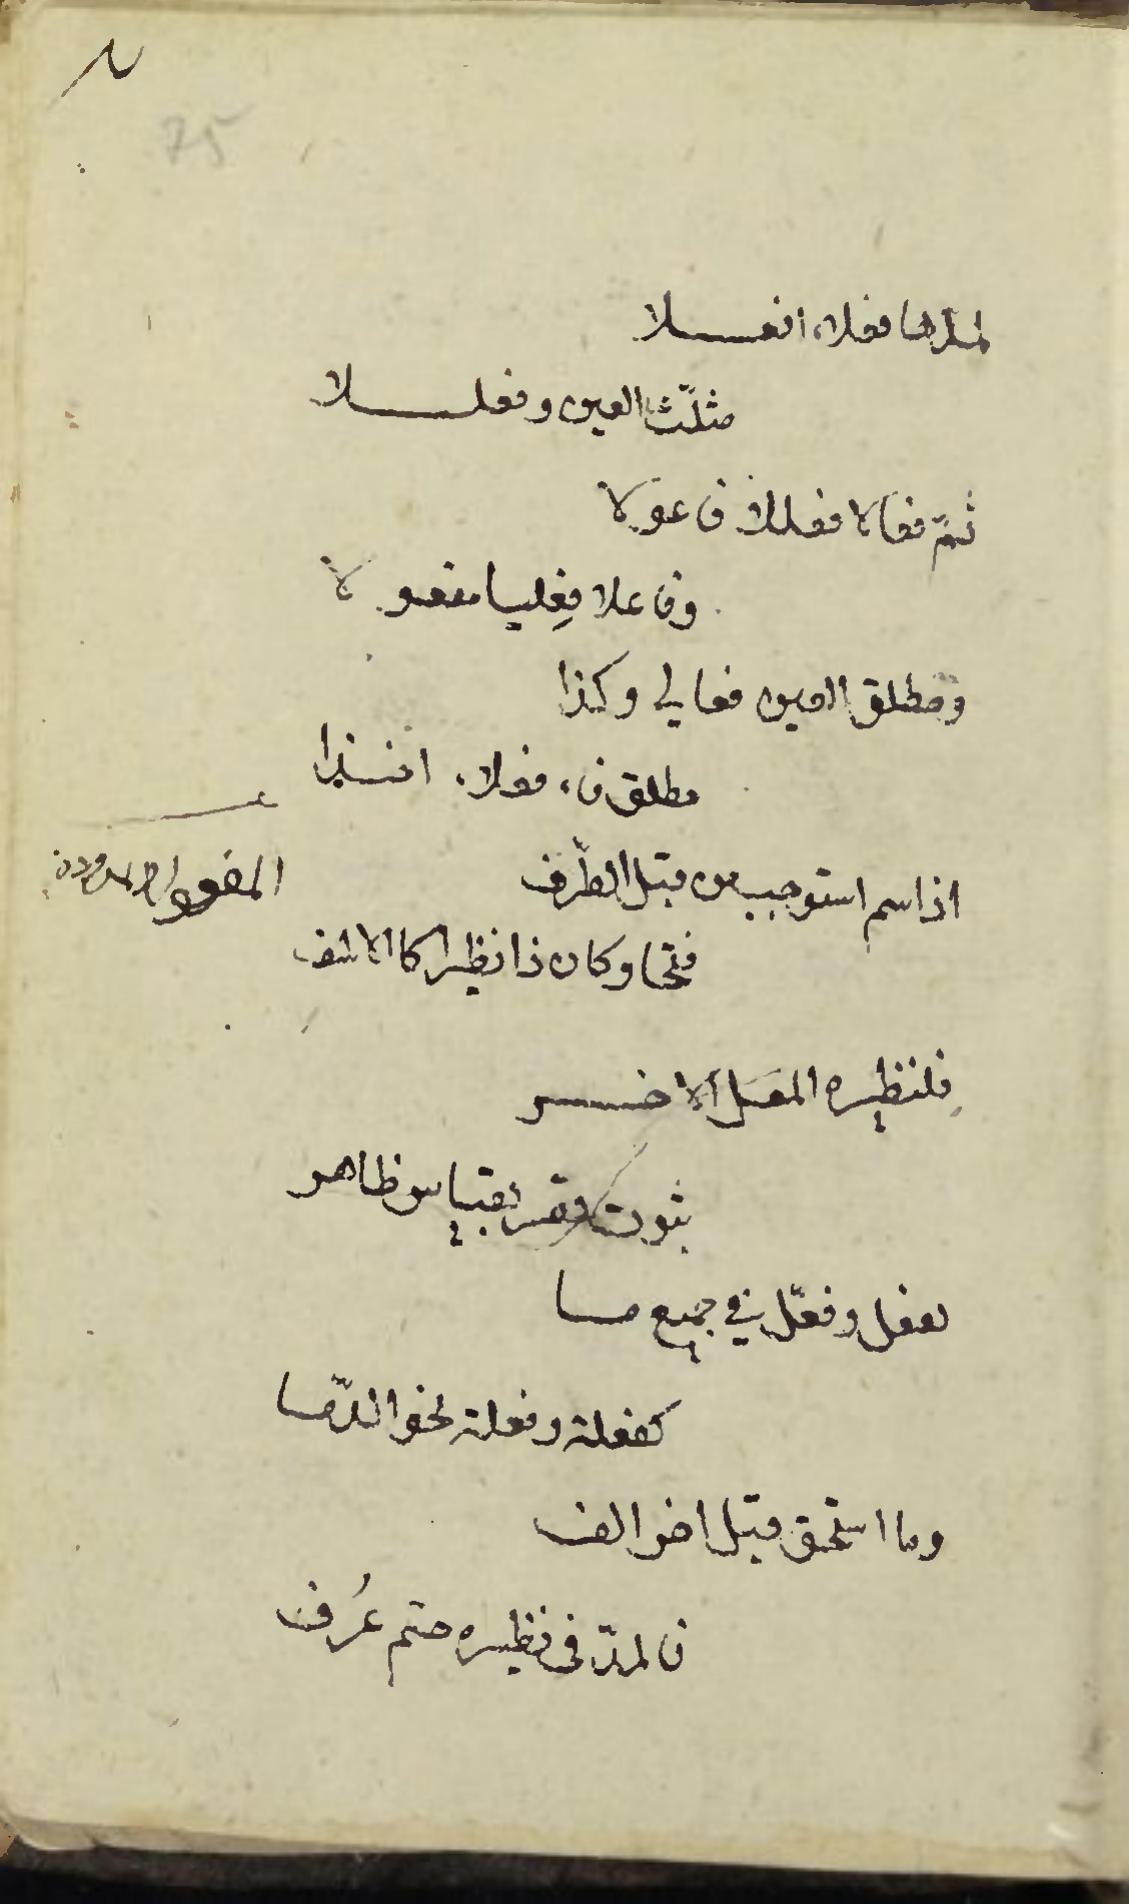 75
لمدها فعلاء افعـــلا
مثلّث العين وفعلـــلا
ثمّ فعالا فعللا فاعولا
وفاعلا فعليا مفعولا
ومطلق العين فعالي وكذا
مطلق فاء فعلاء اخـــذا
المقصور والممدود
اذا اسم استوجب من قبل الطّرف
فتحا وكان ذا نظير كالاسف
فلنظيره المعل الاخـــر
ثبوت قصر بقياس ظاهر
كفعل وفعل في جميع مـــا
كفعلة وفعلة نحو الدّمـــا
وما استحق قبل اخر الف
فالمدّ في نظيره حتم عُرف